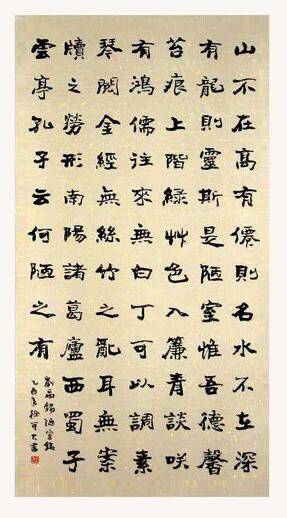 山不在高有僊則名水不在深
有龍則靈斯是陋室惟吾德馨
苔痕上階綠艸色入簾青談咲
有鴻儒往來無白丁可以調素
琴閱金經無絲竹之亂耳無案
牘之勞形南陽諸葛廬西蜀子
雲亭孔子云何陋之有
劉禹錫陋室銘
乙酉書